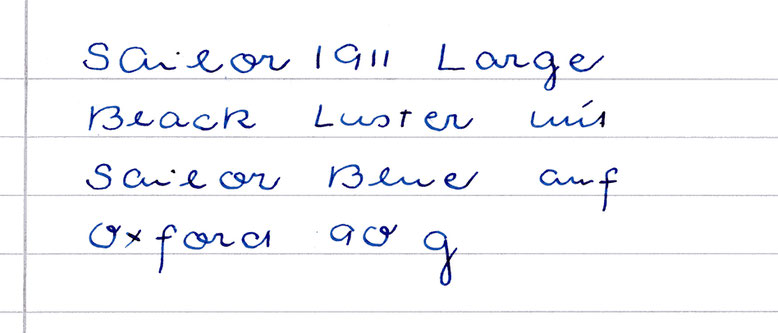 Sailor 1911 Large
Black Luster mit
Sailor Blue auf
Oxford 90 g